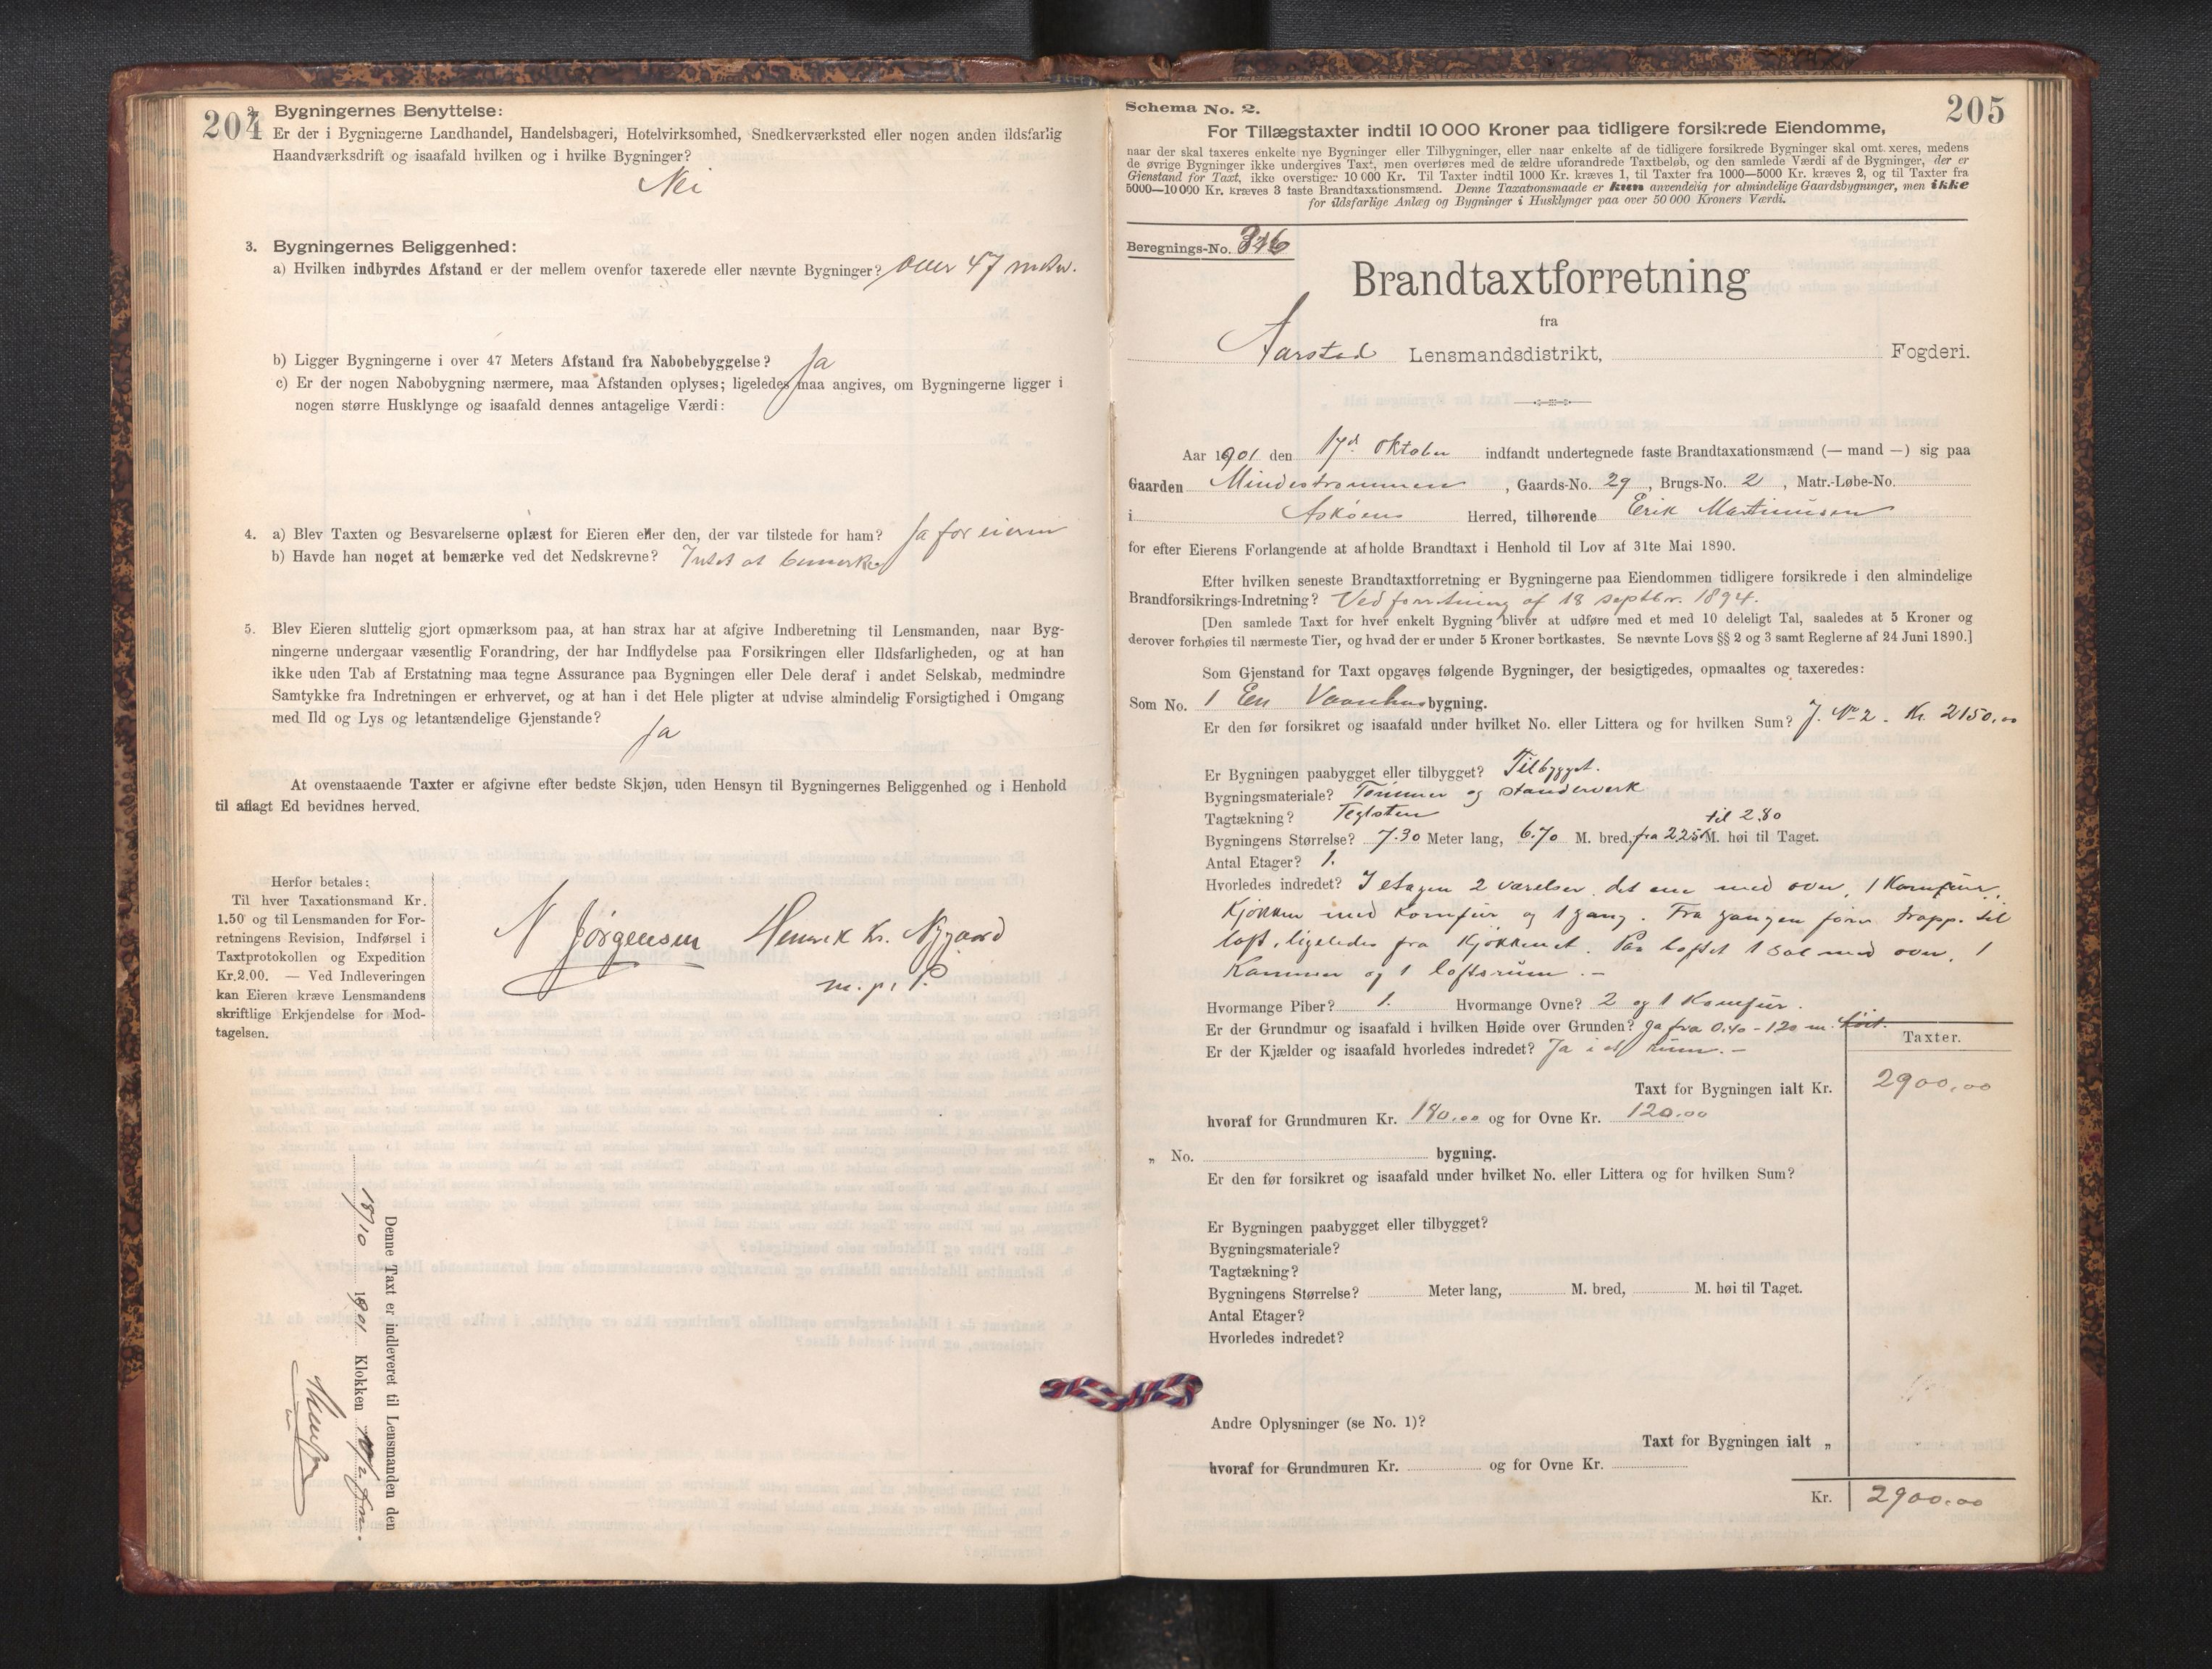 204
2. Bygningernes Benyttelse:
Er der i Bygningerne Landhandel, Handelsbageri, Hotelvirksomhed, Snedkerværksted eller nogen anden ildsfarlig
Haandværksdrift og isaafald hvilken og i hvilke Bygninger?
Nei
3. Bygningernes Beliggenhed:
a) Hvilken indbyrdes Afstand er der mellem ovenfor taxerede eller nævnte Bygninger? Over 47 meter.
b) Ligger Bygningerne i over 47 Meters Afstand fra Nabobebyggelse? Ja
c) Er der nogen Nabobygning nærmere, maa Afstanden oplyses; ligeledes maa angives, om Bygningerne ligger i
nogen større Husklynge og isaafald dennes antagelige Værdi:
4. a) Blev Taxten og Besvarelserne oplæst for Eieren eller den, der var tilstede for ham? Ja for eieren
b) Havde han noget at bemærke ved det Nedskrevne? Intet at bemerke
5. Blev Eieren sluttelig gjort opmærksom paa, at han strax har at afgive Indberetning til Lensmanden, naar Byg-
ningerne undergaar væsentlig Forandring, der har Indflydelse paa Forsikringen eller Ildsfarligheden, og at han
ikke uden Tab af Erstatning maa tegne Assurance paa Bygningen eller Dele deraf i andet Selskab, medmindre
Samtykke fra Indretningen er erhvervet, og at han i det Hele pligter at udvise almindelig Forsigtighed i Omgang
med Ild og Lys og letantændelige Gjenstande?
Ja
At ovenstaaende Taxter er afgivne efter bedste Skjøn, uden Hensyn til Bygningernes Beliggenhed og i Henhold
til aflagt Ed bevidnes herved.
Herfor betales:
Til hver Taxationsmand Kr.
1.50 og til Lensmanden for For-
retningens Revision, Indførsel i
Taxtprotokollen og Expedition
Kr. 2.00. — Ved Indleveringen
kan Eieren kræve Lensmandens
skriftlige Erkjendelse for Mod-
tagelsen.
N Jørgensen Henrik Kr. Nygaard
m. p. P.
Denne Taxt er indleveret til Lensmanden den
18/10 1901 Klokken
205
Schema No. 2.
For Tillægstaxter indtil 10 000 Kroner paa tidligere forsikrede Eiendomme,
naar der skal taxeres enkelte nye Bygninger eller Tilbygninger, eller naar enkelte af de tidligere forsikrede Bygninger skal omtaxeres, medens
de øvrige Bygninger ikke undergives Taxt, men overføres med de ældre uforandrede Taxtbeløb, og den samlede Værdi af de Bygninger, der er
Gjenstand for Taxt, ikke overstiger 10 000 Kr. Til Taxter indtil 1000 Kr. kræves 1, til Taxter fra 1000—5000 Kr. kræves 2, og til Taxter fra
5000—10 000 Kr. kræves 3 faste Brandtaxationsmænd. Denne Taxationsmaade er kun anvendelig for almindelige Gaardsbygninger, men ikke
for ildsfarlige Anlæg og Bygninger i Husklynger paa over 50 000 Kroners Værdi.
Beregnings-No. 346
Brandtaxtforretning
fra
Aarstad Lensmandsdistrikt, Fogderi.
Aar 1901 den 17d Oktober indfandt undertegnede faste Brandtaxationsmænd (— mand —) sig paa
Gaarden Mindestrømmen, Gaards-No. 29, Brugs-No. 2, Matr.-Løbe-No.
i Askøens Herred, tilhørende Erik Martinusen
for efter Eierens Forlangende at afholde Brandtaxt i Henhold til Lov af 31te Mai 1890.
Efter hvilken seneste Brandtaxtforretning er Bygningerne paa Eiendommen tidligere forsikrede i den almindelige
Brandforsikrings-Indretning? Ved forretning af 18 septbr. 1894.
[Den samlede Taxt for hver enkelt Bygning bliver at udføre med et med 10 deleligt Tal, saaledes at 5 Kroner og
derover forhøies til nærmeste Tier, og hvad der er under 5 Kroner bortkastes. Se nævnte Lovs §§ 2 og 3 samt Reglerne af 24 Juni 1890.]
Som Gjenstand for Taxt opgaves følgende Bygninger, der besigtigedes, opmaaltes og taxeredes:
Som No. 1 En Vaanhusbygning.
Er den før forsikret og isaafald under hvilket No. eller Littera og for hvilken Sum? J. No 2. Kr. 2150,00
Er Bygningen paabygget eller tilbygget? Tilbygget.
Bygningsmateriale? Tømmer og standerverk
Tagtækning? Teglsten
til 2.80
Bygningens Størrelse? 7.30 Meter lang, 6.70 M. bred, fra 2.25 M. høi til Taget.
Antal Etager? 1.
Hvorledes indredet? I etagen 2 værelser det ene med oven, 1 Komfur,
Kjøkken med Komfur og 1 gang. Fra gangen fører trapp. til
loft, ligeledes fra Kjøkkenet. Paa loftet 1 sal med oven, 1
Kammer og 1 loftsrum. —
Hvormange Piber? 1. Hvormange Ovne? 2 og 1 Komfur.
Er der Grundmur og isaafald i hvilken Høide over Grunden? Ja fra 0.40 - 1.20 m.
Er der Kjælder og isaafald hvorledes indredet? Ja i et rum. —
Taxter.
Taxt for Bygningen ialt Kr. 2900,00
hvoraf for Grundmuren Kr. 180,00 og for Ovne Kr. 120,00
„ No. bygning.
Er den før forsikret og isaafald under hvilket No. eller Littera og for hvilken Sum?
Er Bygningen paabygget eller tilbygget?
Bygningsmateriale?
Tagtækning?
Bygningens Størrelse? Meter lang, M. bred, M. høi til Taget.
Antal Etager?
Hvorledes indredet?
Andre Oplysninger (se No. 1)?
Taxt for Bygningen ialt „
hvoraf for Grundmuren Kr. og for Ovne Kr.
Kr. 2900,00